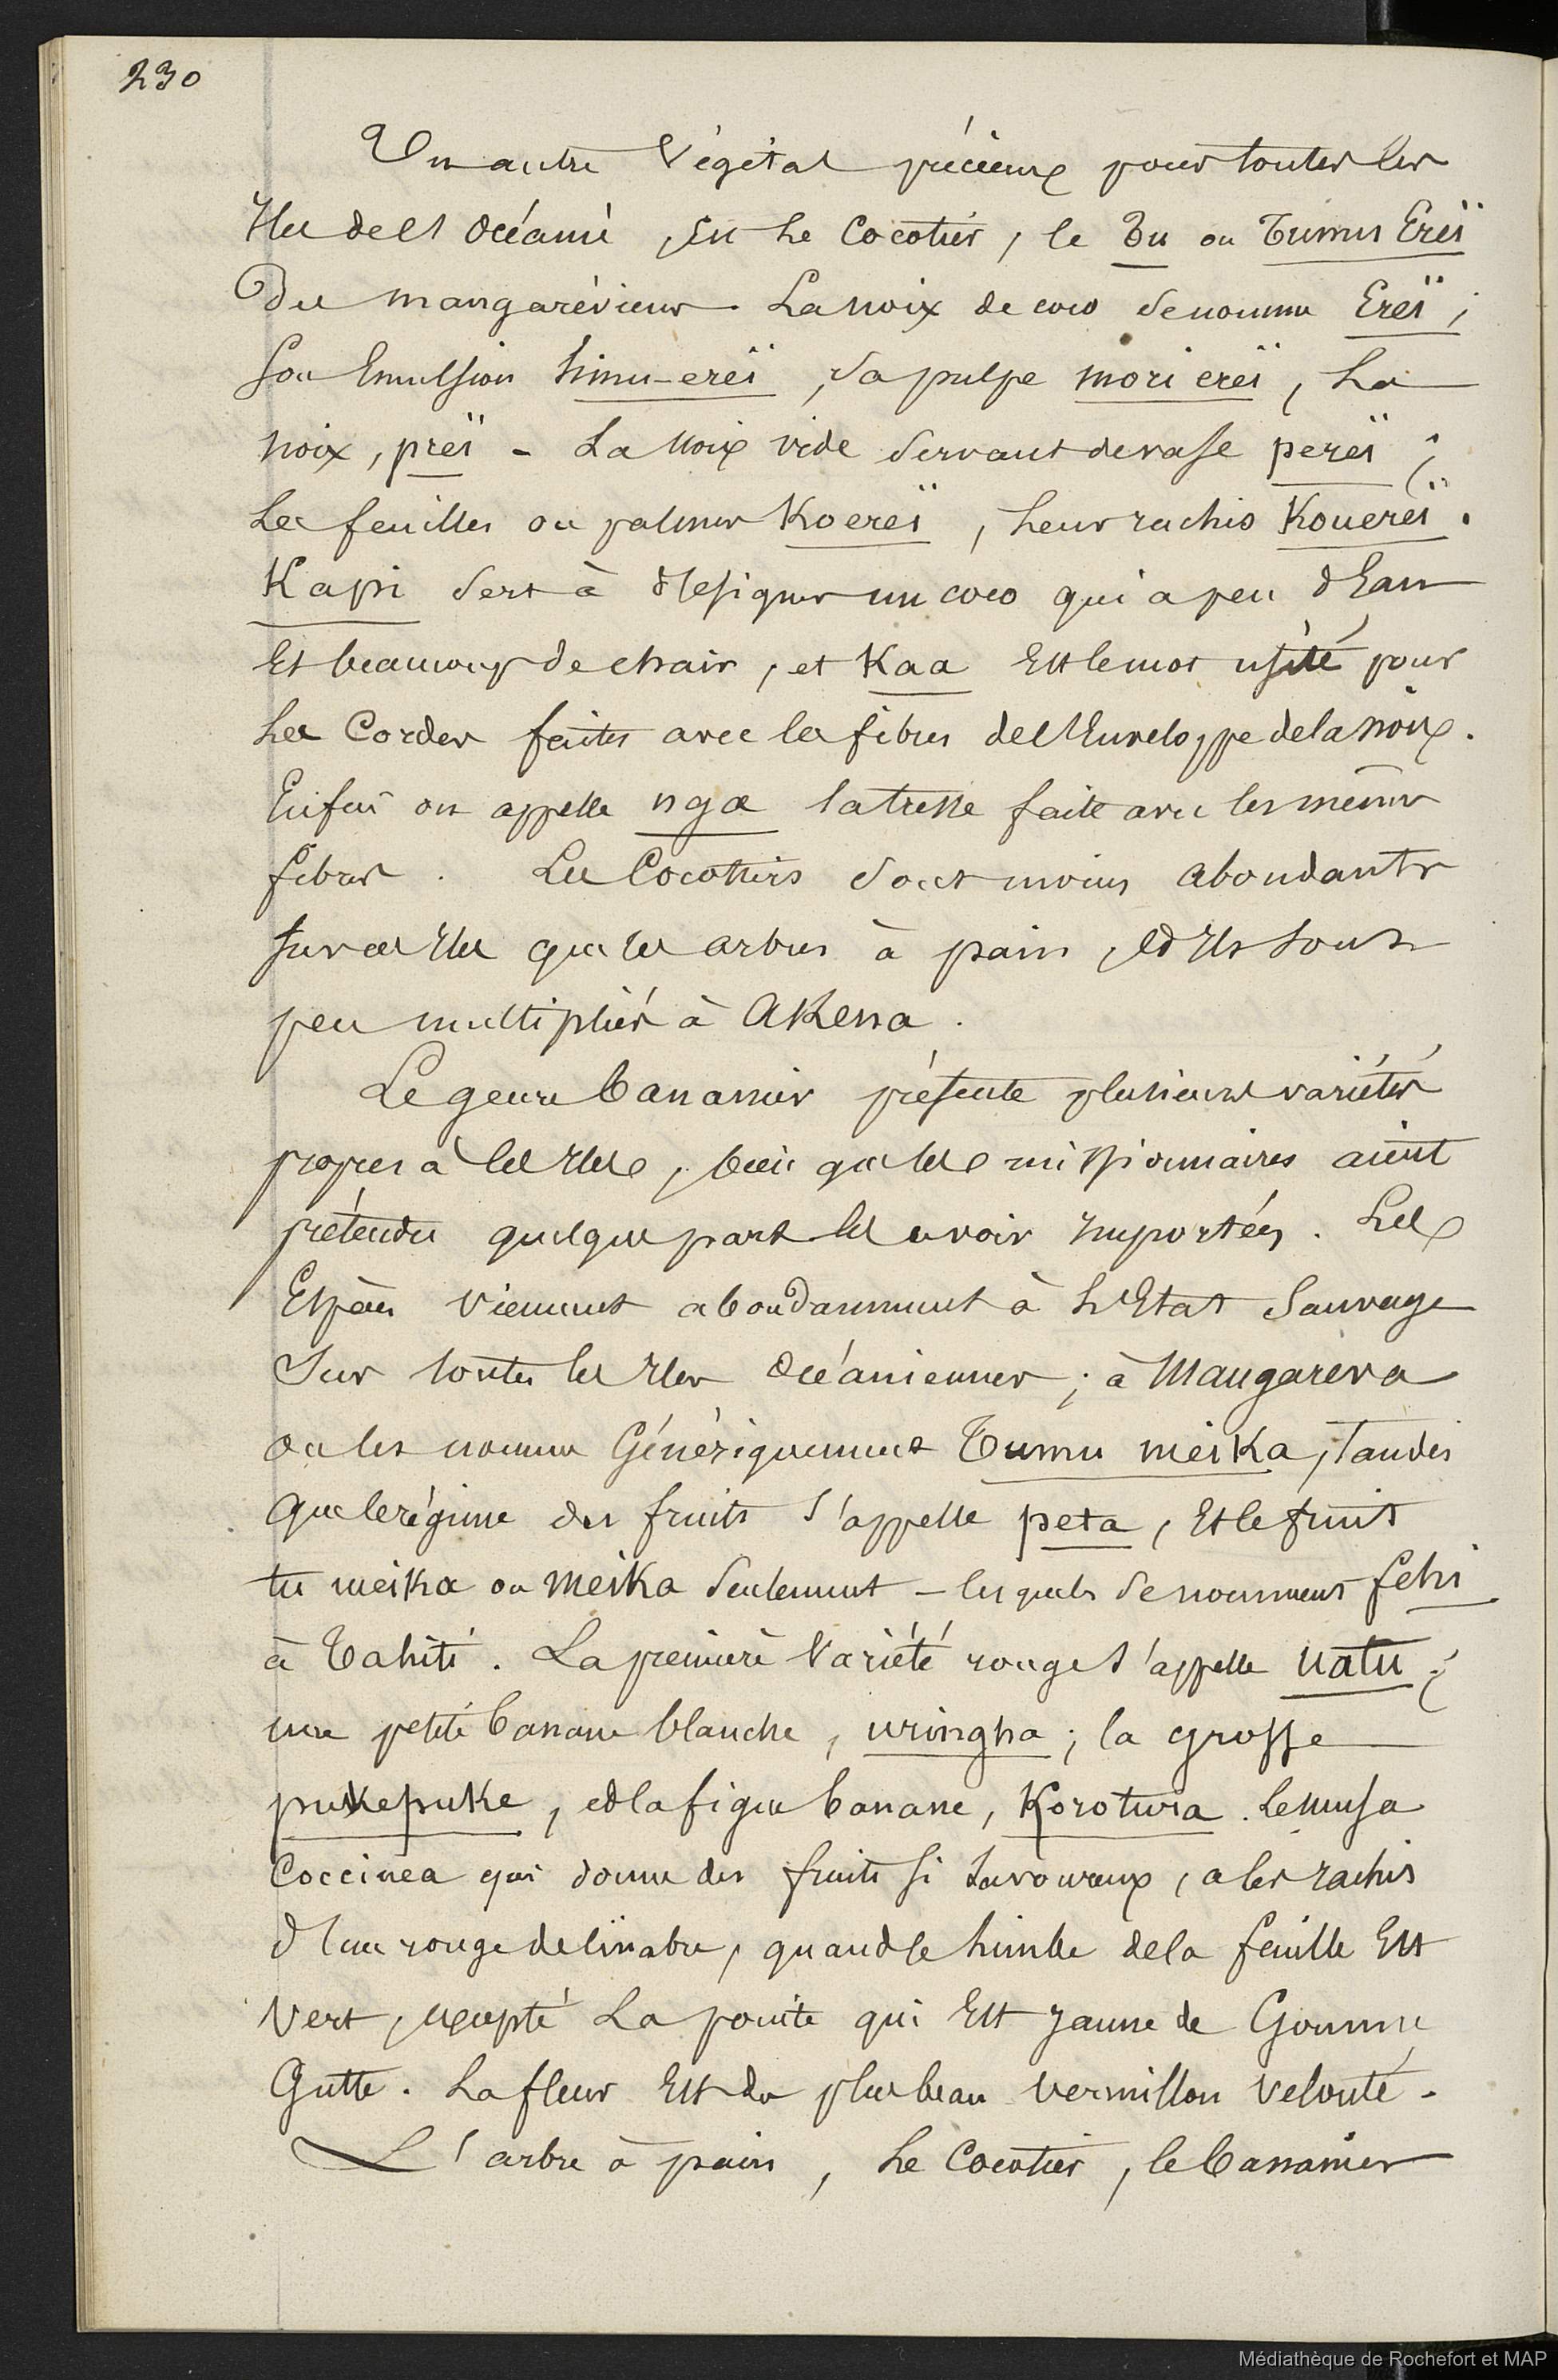 230
Un autre végétal précieux pour toutes les
Iles de l'Océanie, est le Cocotier, le Tu ou Tumu Ereï
des mangaréviens. La noix de coco se nomme Ereï ;
Son Emulsion himu-ereï, sa pulpe mori ereï, la
noix, preï - La noix vide servant de vase pereï ;
Les feuilles ou palmes Koereï, leur rachis Kouereï.
Kapi sert à désigner un coco qui a peu d'Eau
Et beaucoup de chair, et Kaa Est le mot usité pour
les Cordes faites avec les fibres de l'Enveloppe de la noix.
Enfin on appelle nga la tresse faite avec les mêmes
fibres. Les Cocotiers sont moins abondants
sur ces Iles que les arbres à pain, et Ils sont
peu multipliés à AKena.
Le genre bananier présente plusieurs variétés
propres à ces Iles, bien que les missionnaires aient
prétendu quelque part les avoir Importées. Les
Espèces viennent abondamment à l'Etat Sauvage
Sur toutes les Iles Océaniennes ; à Mangareva
on les nomme Génériquement Tumu meika, Tandis
Que le régime des fruits s'appelle peta, Et le fruit
tu meika ou meika seulement - lesquels se nomment fehi
à Tahiti. La première variété rouge s'appelle uatu ;
une petite banane blanche, uringha ; la grosse
pukepuke, et la figue banane, Korotura. Le musa
Coccinea qui donne des fruits si savoureux, a les rachis
d'un rouge de cinabre, quand le limbe de la feuille Est
Vert, excepté la pointe qui Est jaune de Gomme
Gutte. La fleur Est du plus beau vermillon velouté.
L'arbre à pain, le Cocotier, le bananier
Médiathèque de Rochefort et MAP